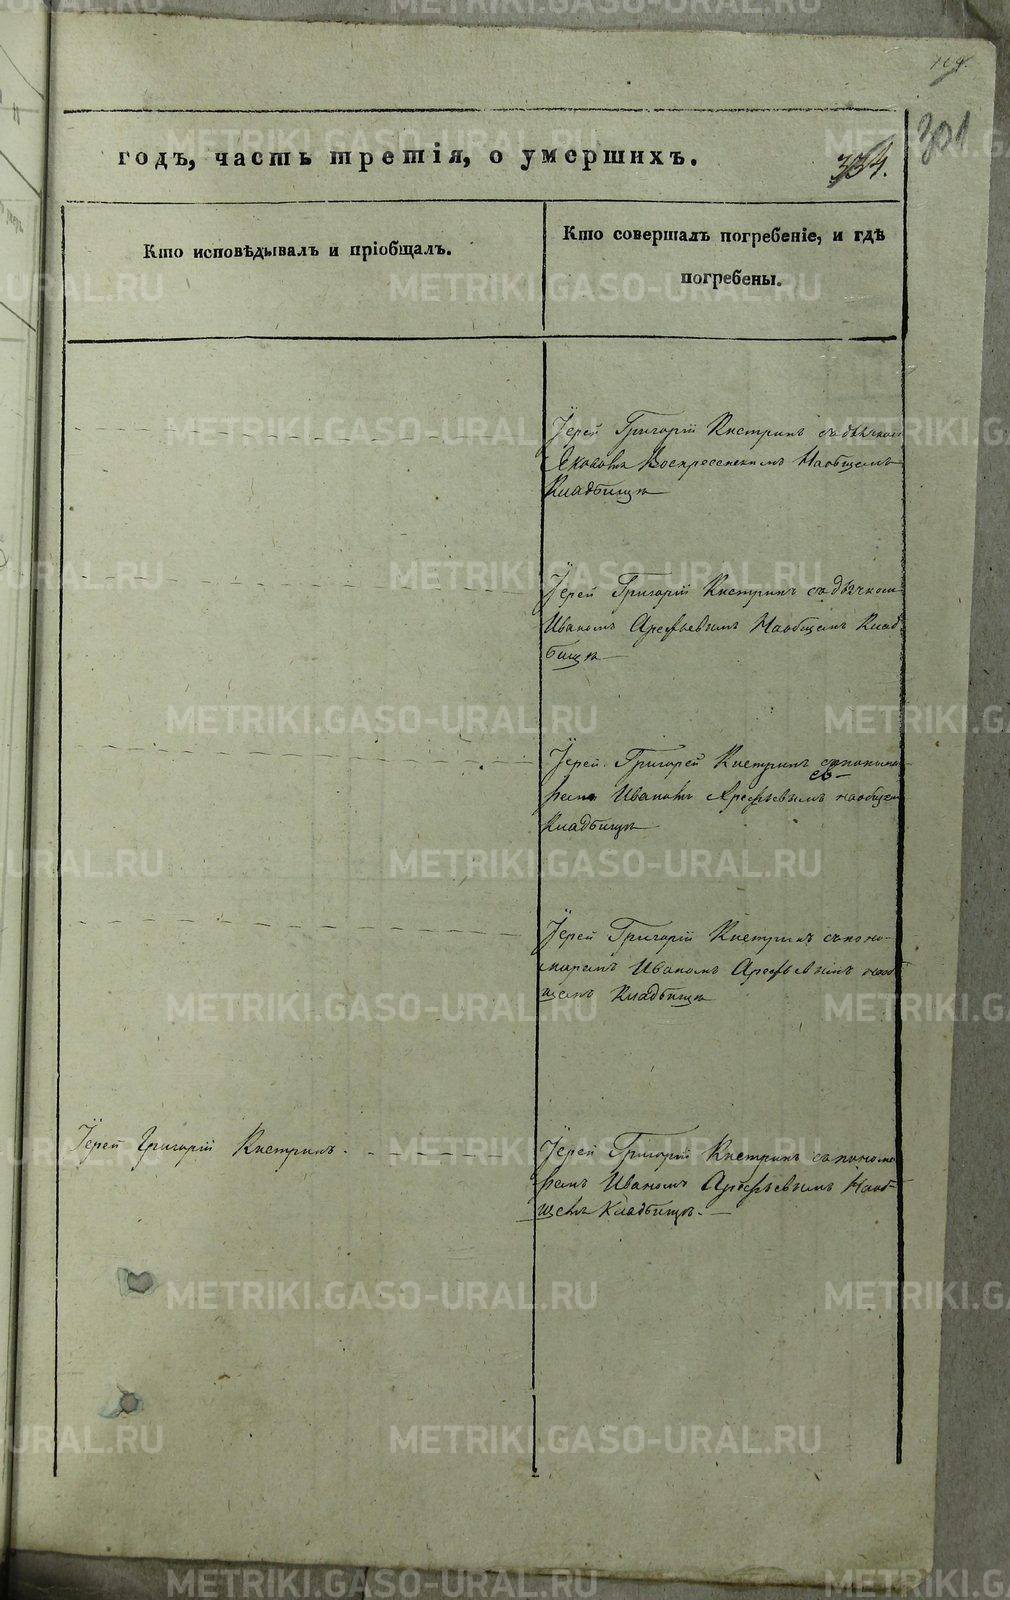 301
334.
годъ, часть третія, о умершихъ.
Кто исповѣдывалъ и пріобщалъ.
Кто совершалъ погребеніе, и гдѣ
погребены.
Іерей Григорій Кистринъ съ дьячкомъ
Яковомъ Воскресенскимъ Наобщемъ
Кладбищѣ
Іерей Григорій Кистринъ съ дьячкомъ
Иваномъ Арефьевымъ Наобщемъ Клад
бищѣ
Іерей Григорей Кистринъ
Иваномъ Арефьевымъ наобщем
Кладбищѣ
Іерей Григорій Кистринъ съ поно-
маремъ Иваномъ Арефьевымъ нааоб
щемъ Кладбищѣ
Іерей Григорій Кистринъ
Іерей Григорій Кистринъ съ понома
ремъ Иваномъ Арефьевымъ Наоб
щемъ Кладбищѣ.
METRIKI.GASO-URAL.RU